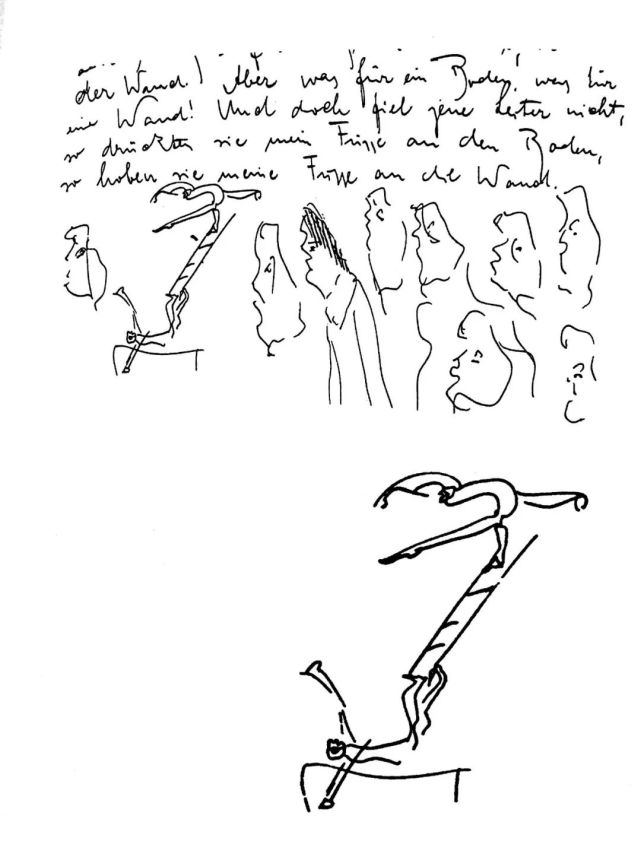 der Wand! Aber was für ein Boden, was für
eine Wand! Und doch fiel jene Leiter nicht,
so drückten sie mein Füsse an den Boden,
so hoben sie meine Füsse an die Wand.